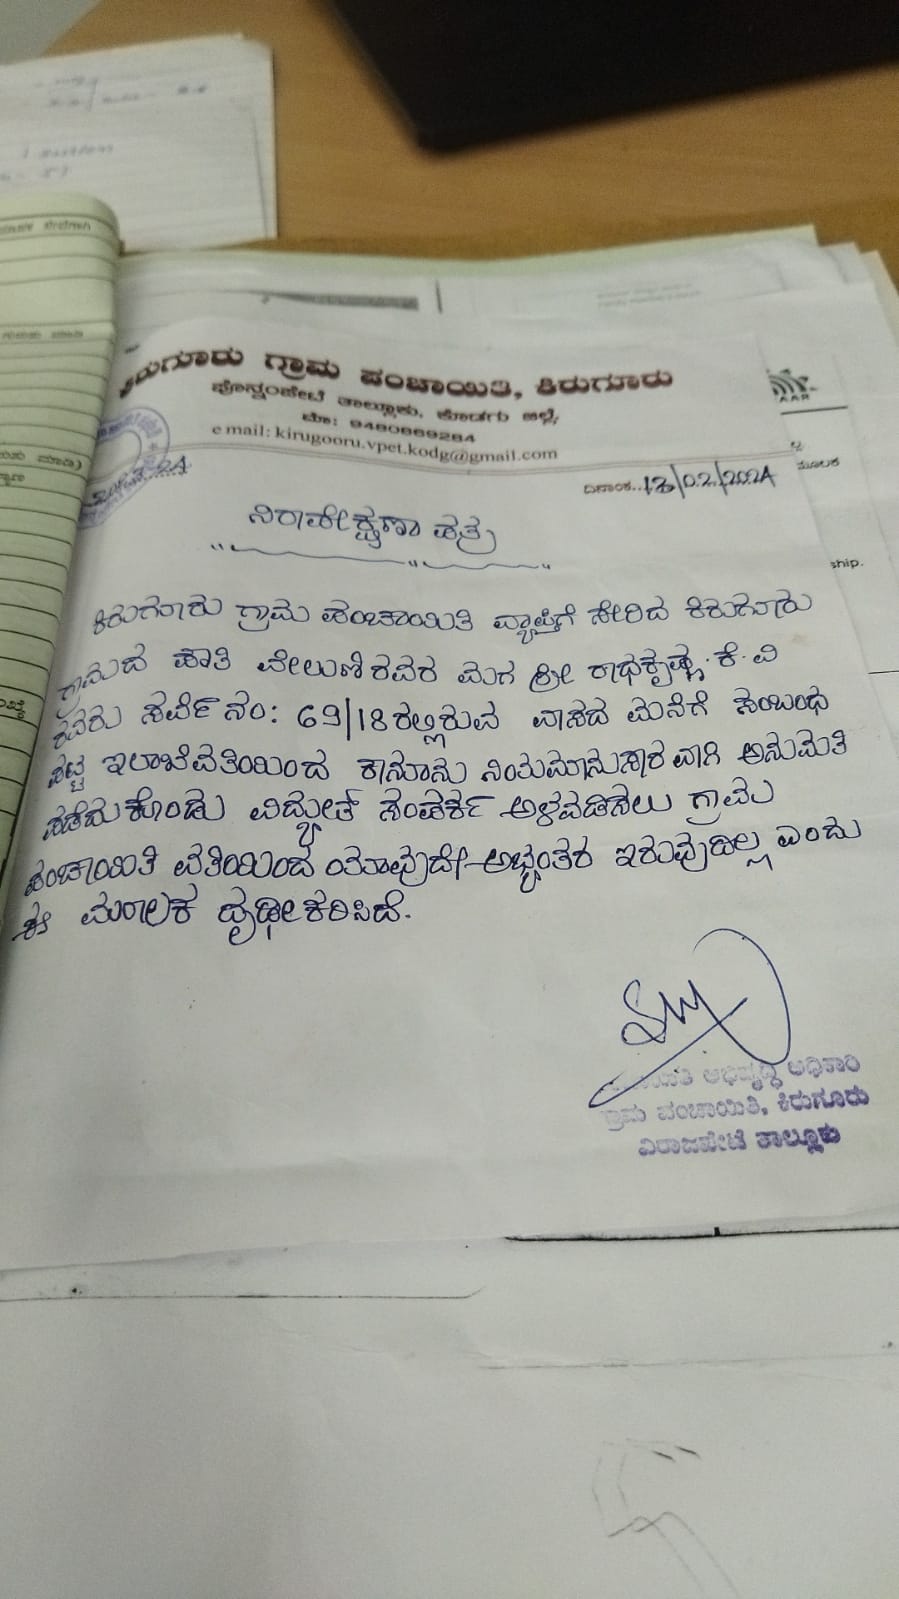 ಕಿರುಗೂರು ಗ್ರಾಮ ಪಂಚಾಯಿತಿ, ಕಿರುಗೂರು
ಪೊನ್ನಂಪೇಟೆ ತಾಲ್ಲೂಕು, ಕೊಡಗು ಜಿಲ್ಲೆ,
ಮೊ: 9480869284
e mail: kirugooru.vpet.kodg@gmail.com
ದಿನಾಂಕ..13/02/2024
ನಿರಾಪೇಕ್ಷಣಾ ಪತ್ರ
ಕಿರುಗೂರು ಗ್ರಾಮ ಪಂಚಾಯಿತಿ ವ್ಯಾಪ್ತಿಗೆ ಸೇರಿದ ಕಿರುಗೂರು
ಗ್ರಾಮದ ವಾಸಿ ವೇಲುಣಿರವರ ಮಗ ಶ್ರೀ ರಾಧಕೃಷ್ಣ. ಕೆ. ವಿ
ರವರು ಸರ್ವೆ ನಂ: 69/18ರಲ್ಲಿರುವ ವಾಸದ ಮನೆಗೆ ಸಂಬಂಧ
ಪಟ್ಟ ಇಲಾಖೆವತಿಯಿಂದ ಕಾನೂನು ನಿಯಮಾನುಸಾರವಾಗಿ ಅನುಮತಿ
ಪಡೆದುಕೊಂಡು ವಿದ್ಯುತ್ ಸಂಪರ್ಕ ಅಳವಡಿಸಲು ಗ್ರಾಮ
ಪಂಚಾಯಿತಿ ವತಿಯಿಂದ ಯಾವುದೇ ಅಭ್ಯಂತರ ಇರುವುದಿಲ್ಲ ಎಂದು
ಈ ಮೂಲಕ ದೃಢೀಕರಿಸಿದೆ.
ಅಭಿವೃದ್ಧಿ ಅಧಿಕಾರಿ
ಗ್ರಾಮ ಪಂಚಾಯಿತಿ, ಕಿರುಗೂರು
ವಿರಾಜಪೇಟೆ ತಾಲ್ಲೂಕು
ಮೂಲಕ
ship.